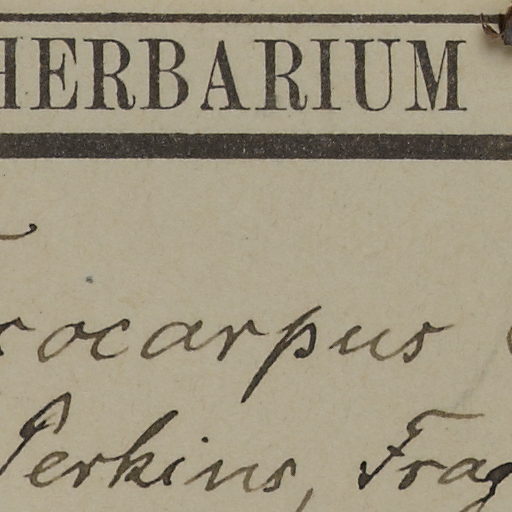 HERBARIUM
ocarpus
Perkins, Frag